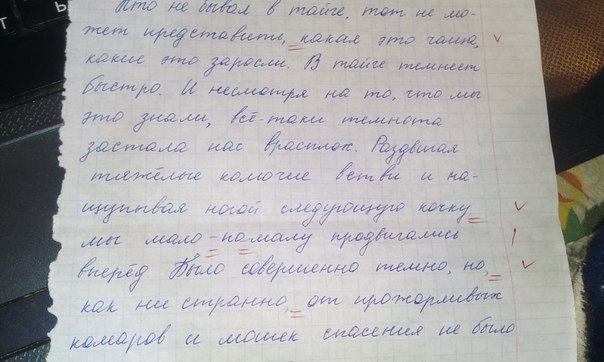 Кто не бывал в тайге, тот не мо-
жет представить, какая это чаща,
какие это заросли. В тайге темнеет
быстро. И несмотря на то, что мы
это знали, всё-таки темнота
застала нас врасплох. Раздвигая
тяжёлые колючие ветви и на-
щупывая ногой следующую кочку,
мы мало-помалу продвигались
вперёд Было совершенно темно, но,
как ни странно, от прожорливых
комаров и мошек спасения не было